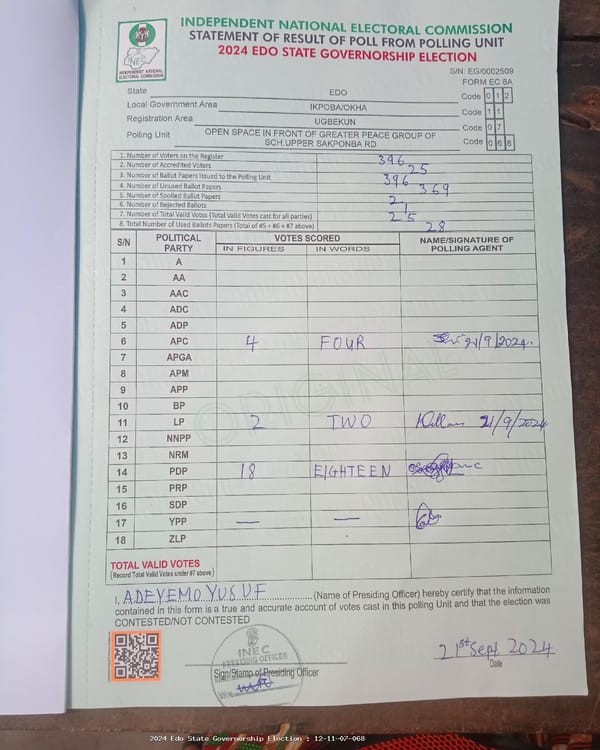 INDEPENDENT NATIONAL ELECTORAL COMMISSION
STATEMENT OF RESULT OF POLL FROM POLLING UNIT
2024 EDO STATE GOVERNORSHIP ELECTION
INEC
INDEPENDENT NATIONAL
ELECTORAL COMMISSION
S/N: EG/0002509
FORM EC 8A
State EDO Code 0 1 2
Local Government Area IKPOBA/OKHA Code 1 1
Registration Area UGBEKUN Code 0 7
Polling Unit OPEN SPACE IN FRONT OF GREATER PEACE GROUP OF SCH.UPPER SAKPONBA RD. Code 0 6 8
1. Number of Voters on the Register 396
2. Number of Accredited Voters 25
3. Number of Ballot Papers Issued to the Polling Unit 396
4. Number of Unused Ballot Papers 369
5. Number of Spoiled Ballot Papers 2
6. Number of Rejected Ballots 1
7. Number of Total Valid Votes (Total Valid Votes cast for all parties) 25
8. Total Number of Used Ballots Papers (Total of #5 + #6 + #7 above) 28
S/N POLITICAL PARTY VOTES SCORED NAME/SIGNATURE OF POLLING AGENT
IN FIGURES IN WORDS
1 A
2 AA
3 AAC
4 ADC
5 ADP
6 APC 4 FOUR 21/9/2024.
7 APGA
8 APM
9 APP
10 BP
11 LP 2 TWO 21/9/2024
12 NNPP
13 NRM
14 PDP 18 EIGHTEEN
15 PRP
16 SDP
17 YPP — —
18 ZLP
ORIGINAL
TOTAL VALID VOTES
(Record Total Valid Votes under #7 above)
I, ADEYEMO YUSUF (Name of Presiding Officer) hereby certify that the information
contained in this form is a true and accurate account of votes cast in this polling Unit and that the election was
CONTESTED/NOT CONTESTED
INEC
PRESIDING OFFICER
Sign/Stamp of Presiding Officer
21st Sept 2024
Date
2024 Edo State Governorship Election : 12-11-07-068